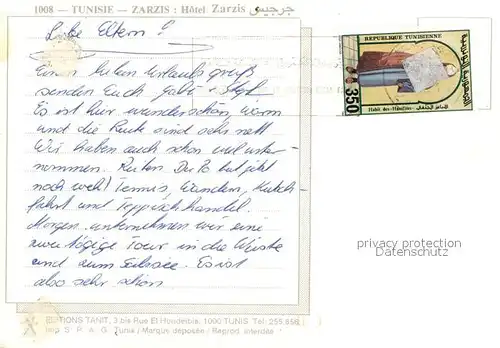 1008 - TUNISIE - ZARZIS : Hôtel Zarzis جرجيس
Liebe Eltern!
Einen lieben Urlaubsgruß
senden Euch Gabi +
Es ist hier wunderschön, warm
und die Leute sind sehr nett
Wir haben auch schon viel unter-
nommen. Reiten, Der Po tut jetzt
noch weh! Tennis, Wandern, Kutsch-
fahrt und Teppichhandel.
Morgen unternehmen wir eine
zweitägige Tour in die Wüste
und zum Salzsee. Es ist
also sehr schön
REPUBLIQUE TUNISIENNE
350
Habit des Hanéfites
privacy protection
Datenschutz
EDITIONS TANIT, 3 bis Rue El Houdeibia, 1000 TUNIS Tél: 255.656
Imp S. P. A. G. Tunis / Marque déposée / Reprod interdite